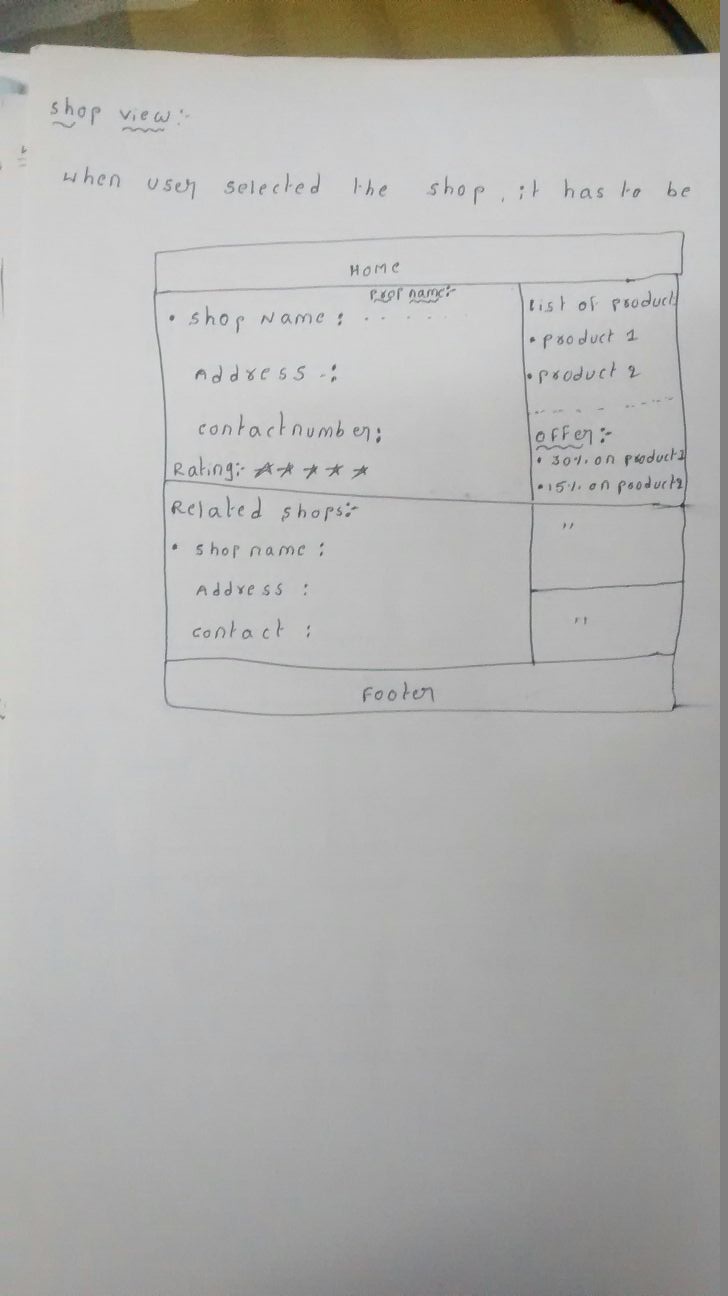 shop view:-
when user selected the shop, it has to be
Home
prop name:-
• shop Name : . . . . . .
Address -:
contactnumber:
Rating:- ★★★★★
List of product
• product 1
• product 2
offer:-
• 30% on product1
• 15% on product2
Related shops:-
• shop name :
Address :
contact :
"
"
Footer